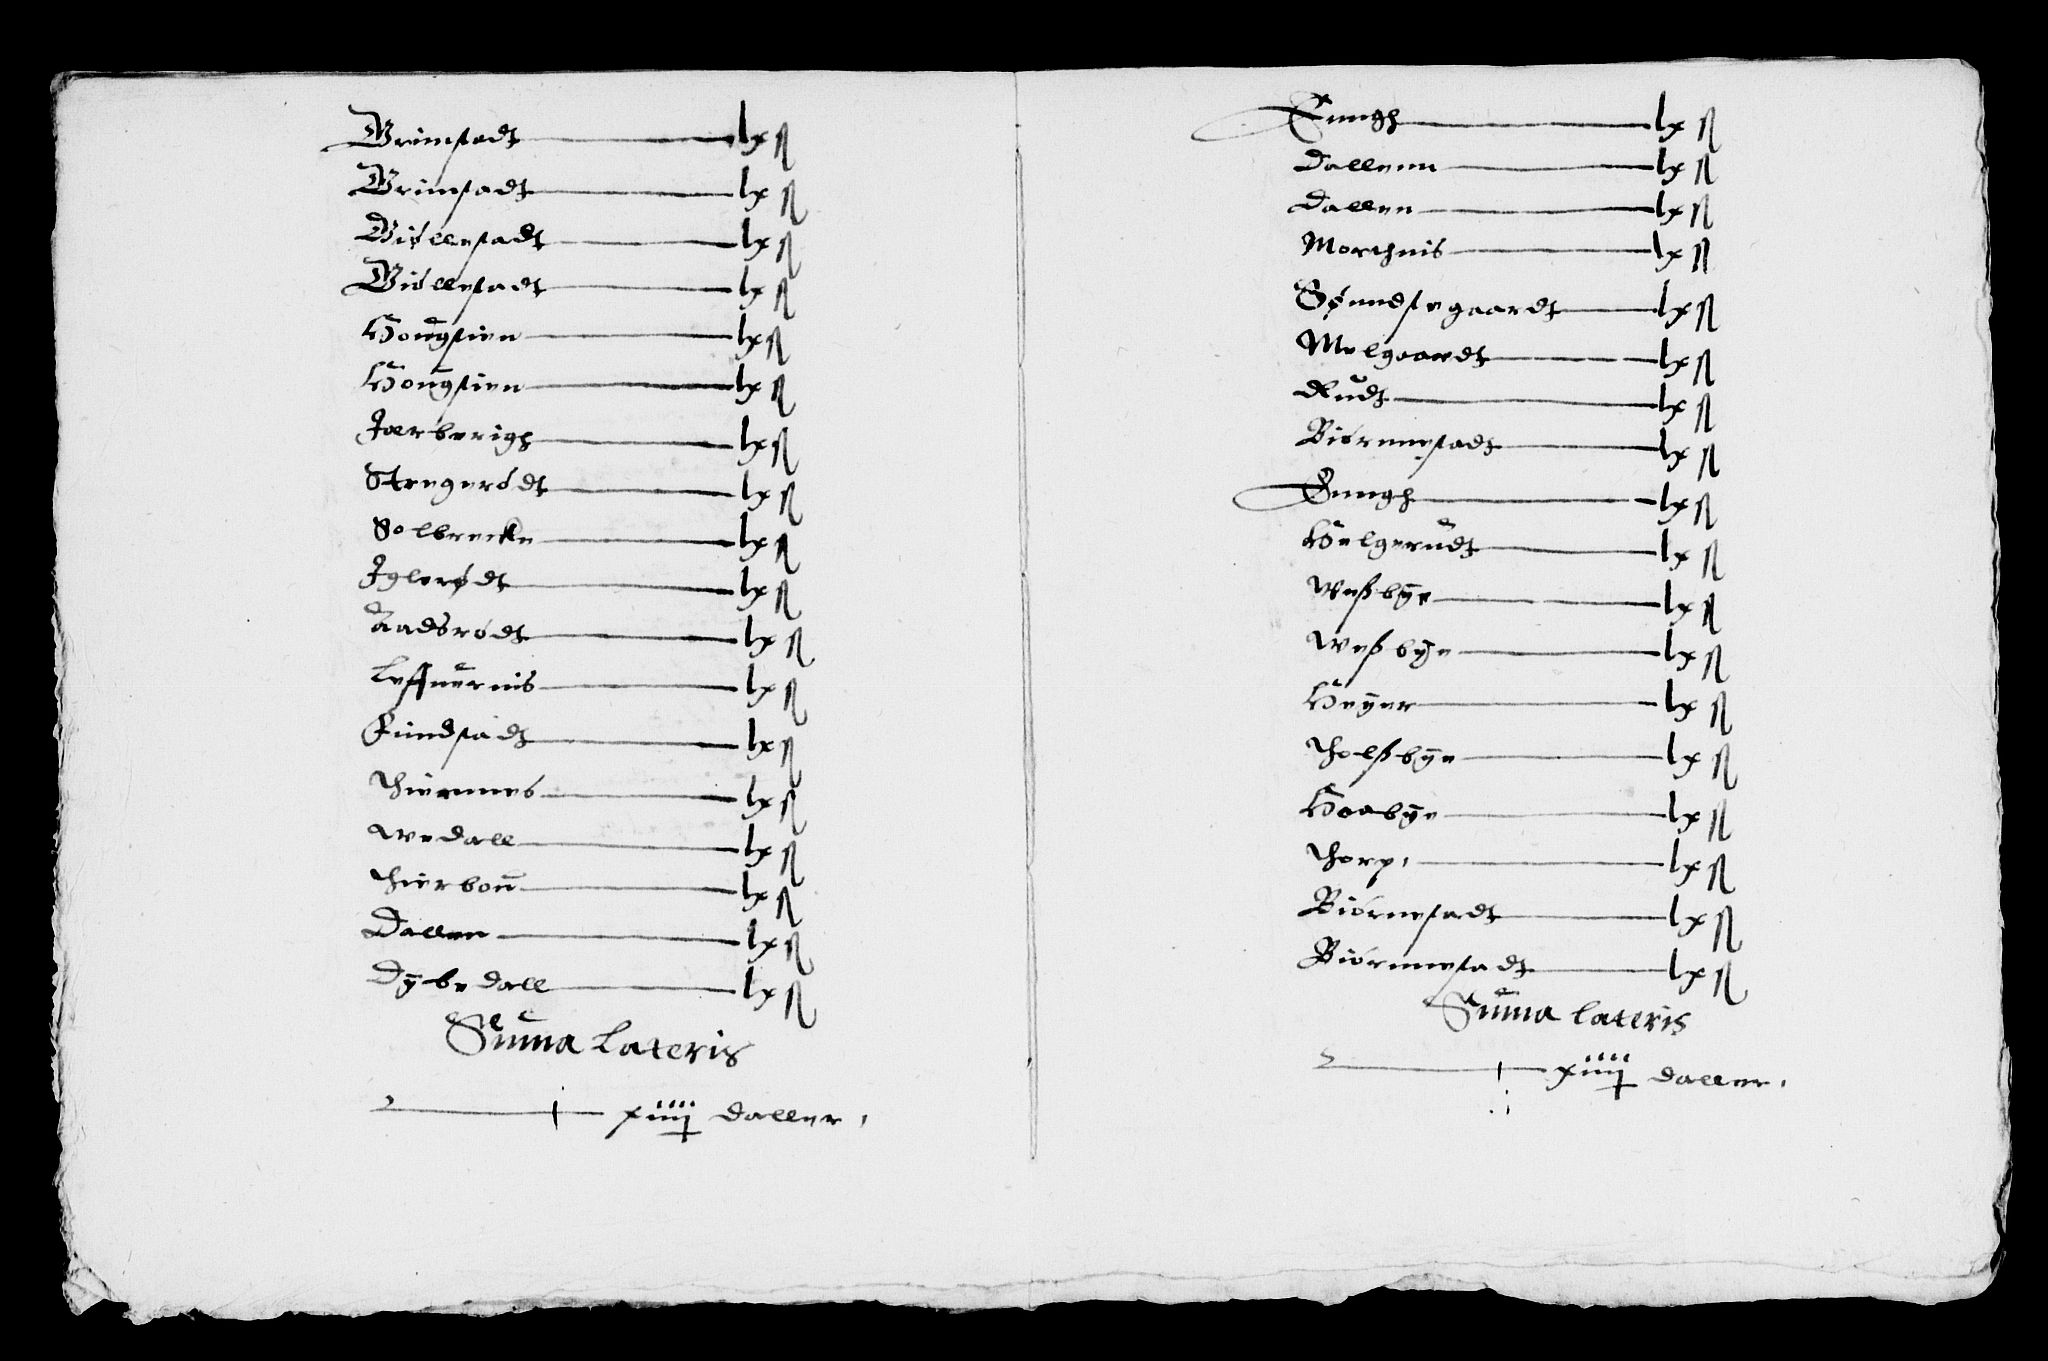 Grimstadt lx ß
Grimstadt lx ß
Giøllestadt lx ß
Giøllestadt lx ß
Hougstien lx ß
Hougstien lx ß
Jaerberigh lx ß
Stregerødt lx ß
Solbrecke lx ß
Iglerødt lx ß
Aadsrødt lx ß
Leffuernis lx ß
Rimdstadt lx ß
Thiernnes lx ß
Wedall lx ß
Thierbou lx ß
Dallen lx ß
Dybedall lx ß
Suma Lateris
xiiij daller
Tungh lx ß
Dallenn lx ß
Dallen lx ß
Morthnis lx ß
Sønndstegaardt lx ß
Melgaardt lx ß
Rudt lx ß
Biørnnestadt lx ß
Tungh lx ß
Helgerudt lx ß
Weßbye lx ß
Weßbye lx ß
Heyer lx ß
Tholßbye lx ß
Haabye lx ß
Thorp lx ß
Biørnestadt lx ß
Biørnnestadt lx ß
Suma Lateris
xiiij daller